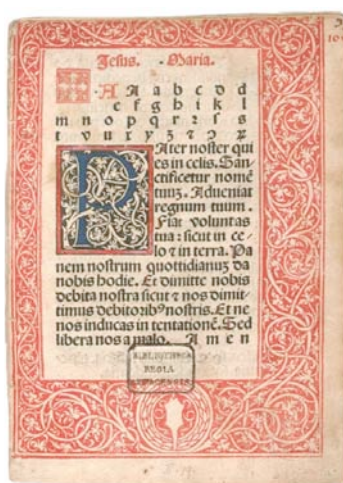 Jesus. Maria.
A A a b c d d
e f g h i k l
m n o p q r ꝛ s ſ s
t v u x y z ꝫ ⁊ ꝯ ꝝ
PAter noſter qui
es in celis. San-
ctificetur nomē
tuuʒ. Adueniat
regnum tuum.
Fiat voluntas
tua: ſicut in ce-
lo ⁊ in terra. Pa
nem noſtrum quottidianuʒ da
nobis hodie. Et dimitte nobis
debita noſtra ſicut ⁊ nos dimit-
timus debitoribꝰ noſtris. Et ne
nos inducas in tentationē. Sed
libera nos a malo. Amen
BIBLIOTHECA
REGIA